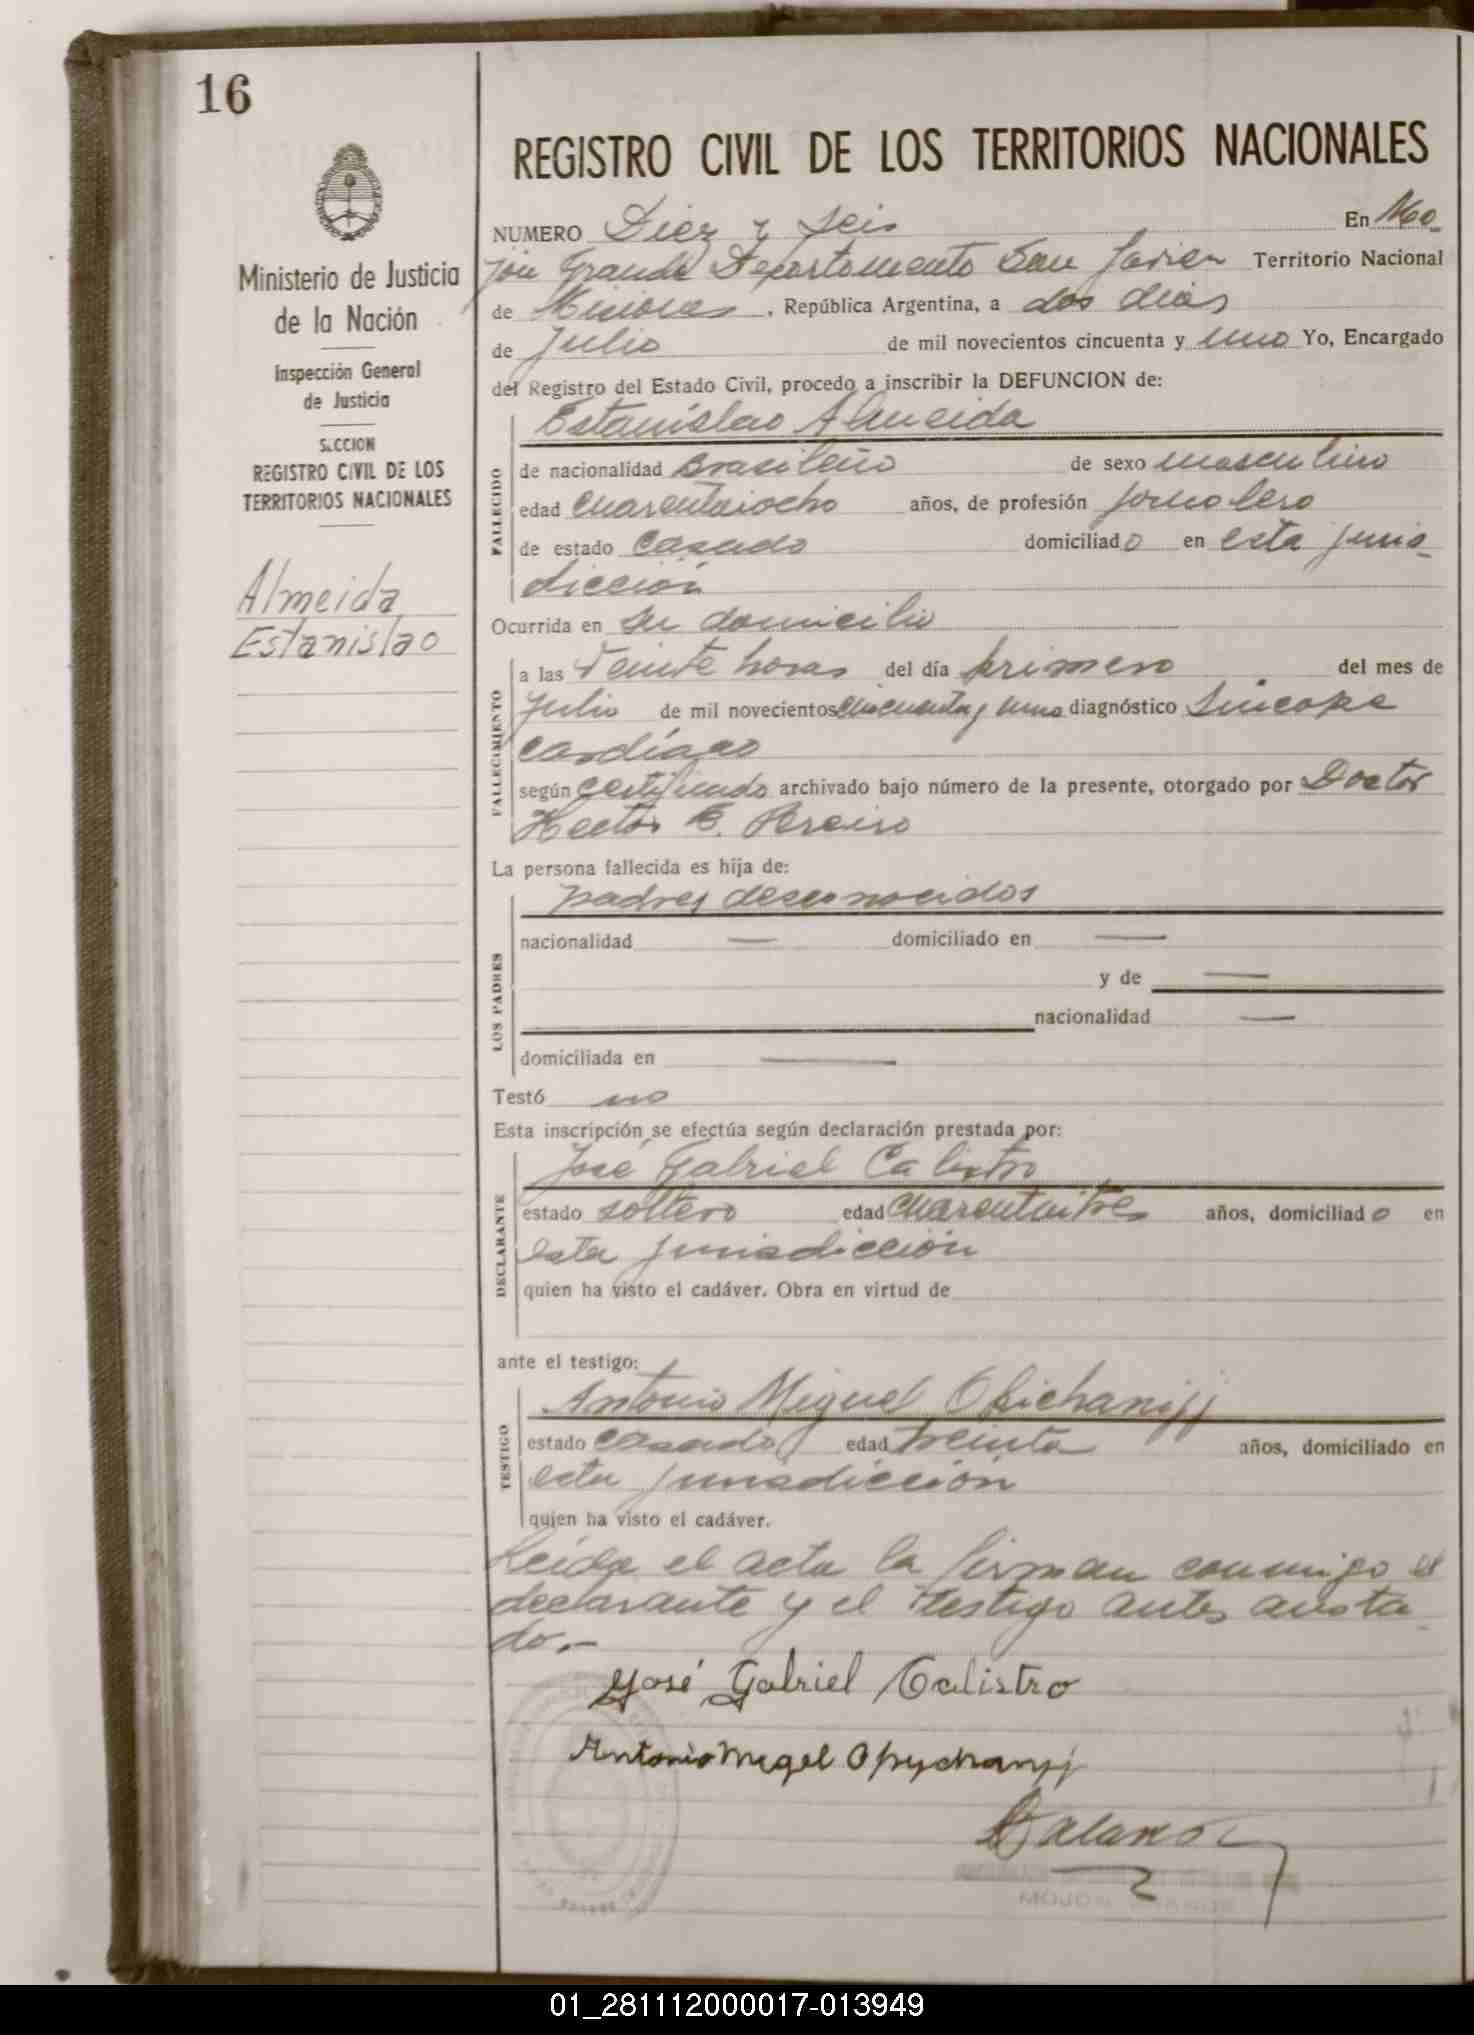 16
Ministerio de Justicia
de la Nación
Inspección General
de Justicia
SECCION
REGISTRO CIVIL DE LOS
TERRITORIOS NACIONALES
Almeida
Estanislao
REGISTRO CIVIL DE LOS TERRITORIOS NACIONALES
NUMERO Diez y seis En Mo
jón Grande Departamento San Javier Territorio Nacional
de Misiones, República Argentina, a dos dias
de Julio de mil novecientos cincuenta y uno Yo, Encargado
del Registro del Estado Civil, procedo a inscribir la DEFUNCION de:
Estanislao Almeida
FALLECIDO
de nacionalidad Brasileño de sexo masculino
edad cuarentaiocho años, de profesión jornalero
de estado casado domiciliado en esta juris
dicción
Ocurrida en su domicilio
FALLECIMIENTO
a las veinte horas del día primero del mes de
Julio de mil novecientos cincuenta y uno diagnóstico Sincope
cardíaco
según certificado archivado bajo número de la presente, otorgado por Doctor
Hector E. Pereiro
La persona fallecida es hija de:
padres desconocidos
LOS PADRES
nacionalidad — domiciliado en —
y de —
nacionalidad —
domiciliada en —
Testó no
Esta inscripción se efectúa según declaración prestada por:
José Gabriel Calistro
DECLARANTE
estado soltero edad cuarentaitres años, domiciliado en
esta jurisdicción
quien ha visto el cadáver. Obra en virtud de
ante el testigo:
Antonio Miguel
TESTIGO
estado casado edad treinta años, domiciliado en
esta jurisdicción
quien ha visto el cadáver.
Leída el acta la firman conmigo el
declarante y el testigo antes anota
do.-
José Gabriel Calistro
Antonio Megel Opychanyj
01_281112000017-013949